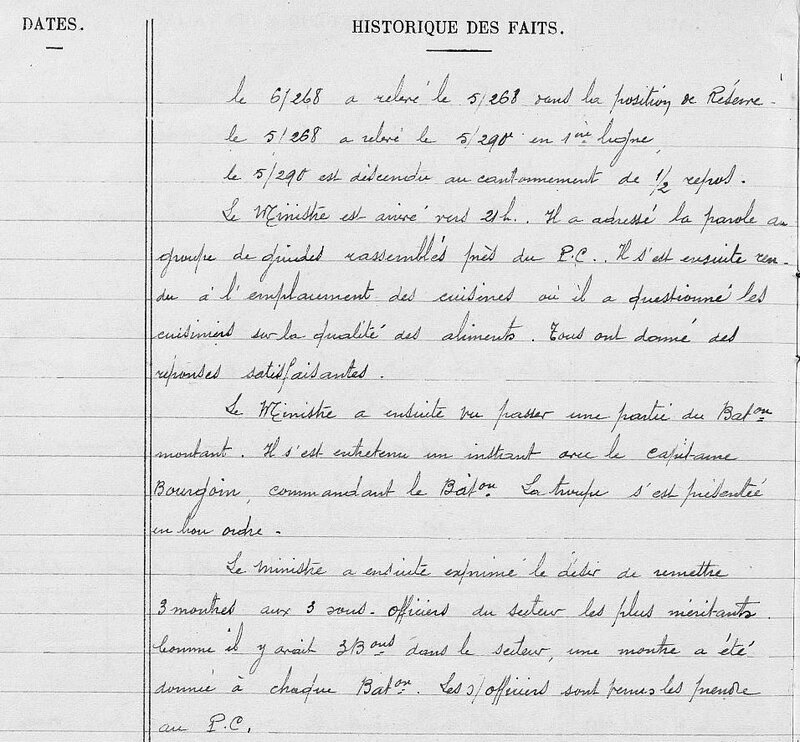 DATES.
HISTORIQUE DES FAITS.
le 6/268 a relevé le 5/268 dans la position de Réserve -
le 5/268 a relevé le 5/290e en 1ère ligne
le 5/290 est descendu au cantonnement de 1/2 repos.
Le Ministre est arrivé vers 21h. . Il a adressé la parole au
groupe de guides rassemblés près du P.C.. Il s'est ensuite ren-
du à l'emplacement des cuisines où il a questionné les
cuisiniers sur la qualité des aliments. Tous ont donné des
réponses satisfaisantes.
Le Ministre a ensuite vu passer une partie du Baton
montant. Il s'est entretenu un instant avec le Capitaine
Bourgoin, commandant le Baton. La troupe s'est présentée
en bon ordre -
Le ministre a ensuite exprimé le désir de remettre
3 montres aux 3 sous-officiers du secteur les plus méritants.
Comme il y avait 3 Bons dans le secteur, une montre a été
donnée à chaque Baton. Les s/officiers sont venus les prendre
au P.C.